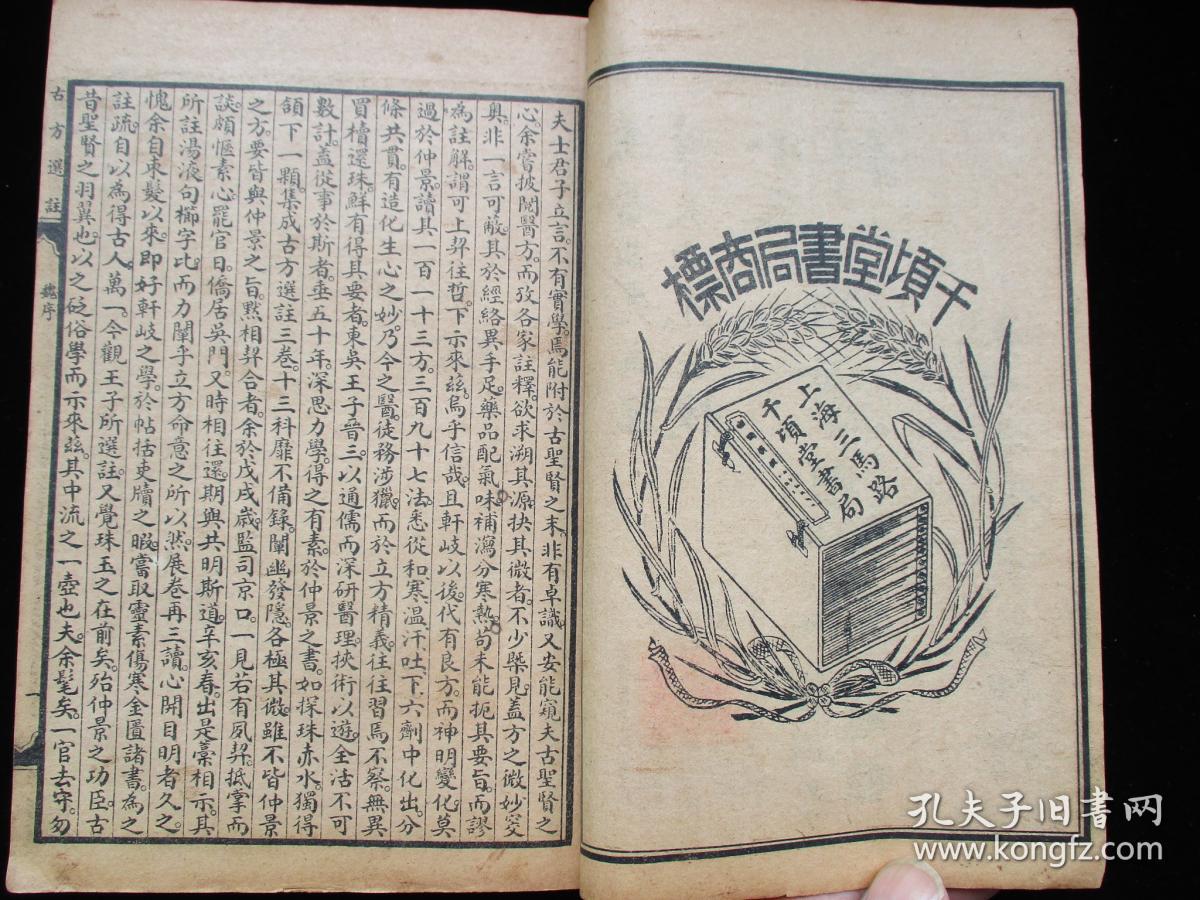 千頃堂書局商標
上海三馬路
千頃堂書局
夫士君子立言。不有實學。焉能附於古聖賢之末。非有卓識。又安能窺夫古聖賢之
心。余嘗披閱醫方。而攷各家註釋。欲求溯其源。抉其微者。不少槩見。蓋方之微妙突
奧。非一言可蔽。其於經絡異手足。藥品配氣味。補瀉分寒熱。苟未能扼其要旨。而謬
為註解。謂可上契往哲。下示來茲。烏乎信哉。且軒岐以後。代有良方。而神明變化。莫
過於仲景。讀其一百一十三方。三百九十七法。悉從和寒溫汗吐下六劑中化出。分
條共貫。有造化生心之妙。乃今之醫。徒務涉獵。而於立方精義。往往習焉不察。無異
買櫝還珠。鮮有得其要者。東吳王子晉三。以通儒而深研醫理。挾術以遊。全活不可
數計。蓋從事於斯者。垂五十年。深思力學。得之有素。於仲景之書。如探珠赤水。獨得
頷下一顆。集成古方選註三卷。十三科靡不備錄。闡幽發隱。各極其微。雖不皆仲景
之方。要皆與仲景之旨。默相契合者。余於戊戌歲。監司京口。一見若有夙契。抵掌而
談。頗愜素心。罷官日。僑居吳門。又時相往還。期與共明斯道。辛亥春。出是藁相示。其
所註湯液。句櫛字比。而力闡乎立方命意之所以然。展卷再三讀。心開目明者久之。
愧余自束髮以來。即好軒岐之學。於帖括吏牘之暇。嘗取靈素傷寒金匱諸書。為之
註疏。自以為得古人萬一。今觀王子所選註。又覺珠玉之在前矣。殆仲景之功臣。古
昔聖賢之羽翼也。以之砭俗學而示來茲。其中流之一壺也夫。余髦矣。一官去守。勿
古方選註
魏序
一
孔夫子旧书网
www.kongfz.com